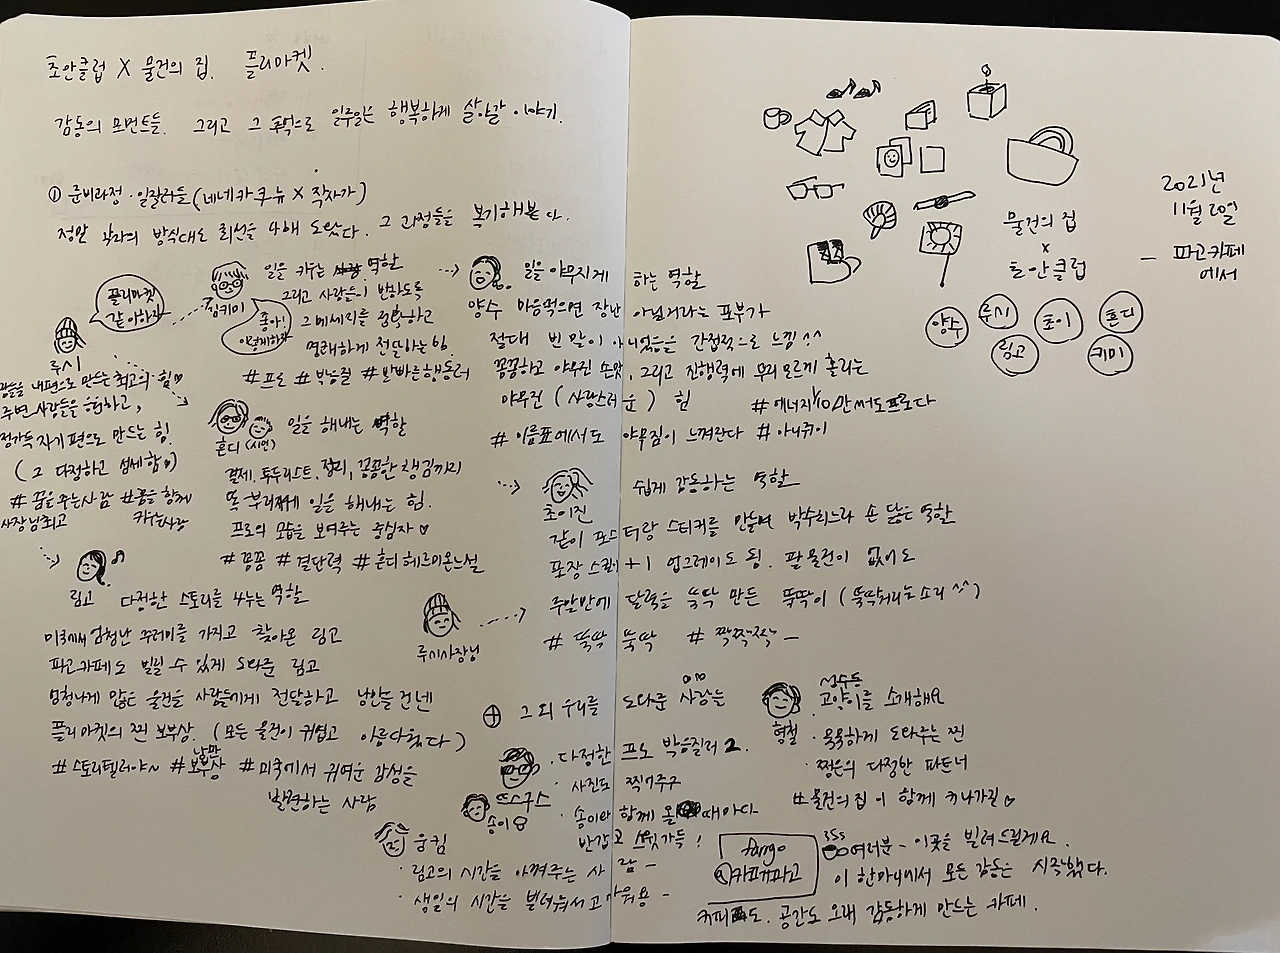 초안클럽 X 물건의 집. 플리마켓.
감동의 모먼트들. 그리고 그 추억으로 일주일은 행복하게 살아갈 이야기.
① 준비과정 · 일잘러들 (네네카쿠뉴 X 작자가)
정말 각자의 방식대로 최선을 다해 도왔다. 그 과정들을 복기해본다.
플리마켓
같이하자
루시
사람들을 내편으로 만드는 최고의 힘♡
주변 사람들을 하고,
정가득 자기 편으로 만드는 힘.
(그 다정하고 섬세함♡)
#꿈을 주는 사람 #꿈을 함께
사장님최고 키우는 사람
킴키미
좋아!
이렇게하자
일을 키우는 역할
그리고 사람들이 반하도록
그 메세지를 정확하고
명쾌하게 전달하는 힘.
#프로 #박능률 #발빠른행동러
흔디 (시연)
일을 해내는 역할
결제, 투두리스트, 정리, 꼼꼼한 챙김까지
똑 부러지게 일을 해내는 힘.
프로의 모습을 보여주는 중심자♡
#꼼꼼 #결단력 #흔디헤르미온느설
림고
다정한 스토리를 나누는 역할
미국에서 엄청난 꾸러미를 가지고 찾아온 림고
파고카페도 빌릴 수 있게 도와준 림고
엄청나게 많은 물건들 사람들에게 전달하고 낭만을 건넨
플리마켓의 찐 보부상. (모든 물건이 귀엽고 아름다웠다)
#스토리텔러야~ #낭만보부상 #미국에서 귀여운 감성을
발견하는 사람
양수
일을 야무지게 하는 역할
마음먹으면 장난 아닐거라는 포부가
절대 빈 말이 아니었음을 간접적으로 느낌^^
꼼꼼하고 야무진 손맛, 그리고 진행력에 부리모르게 홀리는
야무진 (사랑스러운) 힘 #에너지 1/10만써도프로다
#이름표에서도 야무짐이 느껴진다 #아니쥬이
초이진
쉽게 감동하는 역할
같이 포스터랑 스티커를 만들며 박수치느라 손 닳은 역할
포장 스킬 +1 업그레이드 됨. 팔 물건이 없어도
주말반에 달력을 뚝딱 만든 뚝딱이 (뚝딱거리는 소리^^)
#뚝딱 뚝딱 #짝짝짝 –
루시사장님
⊕ 그 외 우리를 도와준 사람들
뜨스구스
송이
· 다정한 프로 박능률러2.
· 사진도 찍어주구
· 송이와 함께 올 때마다
반갑고 스윗가득!
웅킴
· 림고의 시간을 아껴주는 사람 –
· 생일의 시간을 빌려줘서 고마워용 –
형철
성수동
고양이를 소개해요
· 묵묵하게 도와주는 찐
· 쩡은의 다정한 파트너
#물건의 집이 함께 커나가길♡
fargo
@카페파고
여러분 – 이곳을 빌려드릴게요.
이 한마디에서 모든 감동은 시작했다.
커피도. 공간도 오래 감동하게 만드는 카페.
물건의 집
x
초안클럽
양수
루시
초이
흔디
림고
키미
2021년
11월 20일
– 파고카페
에서